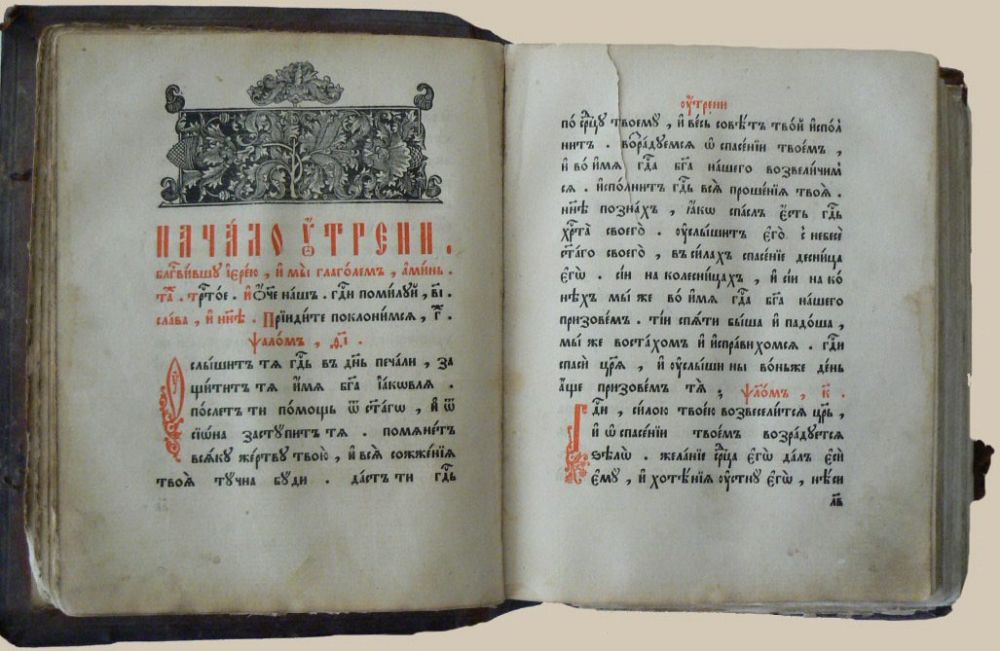 НАЧА́ЛО Ꙋ҆́ТРЕНИ .
Блгⷭ҇ви́вшꙋ і҆ере́ю , и҆ мы̀ глаго́лемъ , а҆ми́нь .
Та́ . трⷭ҇то́е . и҆ Ѻ҆́ч҃е на́шъ . гдⷭ҇и поми́лꙋй , в҃і .
сла́ва , и҆ нн҃ѣ . Прїиди́те поклони́мся , г҃ .
ѱало́мъ , ѳ҃і .
Оу҆слы́шитъ тя гдⷭ҇ь въ дн҃ь печа́ли , за
щи́титъ тя и҆́мя бг҃а і҆а́ковля .
по́слетъ ти по́мощь ѿ ст҃а́гѡ , и҆ ѿ
сїѡ́на застꙋ́питъ тя . помяне́тъ
вся́кꙋ же́ртвꙋ твою̀ , и҆ вся̀ сожже́нїя
твоя̀ тꙋ́чна бꙋ́ди . да́стъ ти гдⷭ҇ь
оу҆́трени
по срⷣцꙋ твоемꙋ̀ , и҆ ве́сь совѣ́тъ тво́й и҆спо́л
нитъ . возра́дꙋемся ѡ҆ спасе́нїи твое́мъ ,
и҆ во и҆́мя гдⷭ҇а бг҃а на́шего возвели́чим
ся . и҆спо́лнитъ гдⷭ҇ь вся̀ проше́нїя твоя̀ .
нн҃ѣ позна́хъ , ꙗ҆́кѡ спа́слъ є҆́сть гдⷭ҇ь
хрⷭ҇та̀ своего̀ . оу҆слы́шитъ є҆го̀ с небесѐ
ст҃а́го своего̀ , въ си́лахъ спасе́нїе десни́ца
є҆гѡ̀ . сі́и на колесни́цахъ , и҆ сі́и на ко
не́хъ мы́ же во и҆́мя гдⷭ҇а бг҃а на́шего
призове́мъ . ті́и спя́ти бы́ша и҆ падо́ша ,
мы́ же воста́хомъ и҆ и҆спра́вихомся . гдⷭ҇и
спасѝ цр҃я̀ , и҆ оу҆слы́ши ны̀ во́ньже де́нь
а҆́ще призове́мъ тя̀ ; ѱало́мъ , к҃ .
Гдⷭ҇и , си́лою твое́ю возвесели́тся цр҃ь ,
и҆ ѡ҆ спасе́нїи твое́мъ возра́дꙋется
ѕѣлѡ̀ . жела́нїе срⷣца є҆гѡ̀ да́лъ є҆сѝ
є҆мꙋ̀ , и҆ хотѣ́нїя оу҆стнꙋ̀ є҆гѡ̀ , нѣ́си